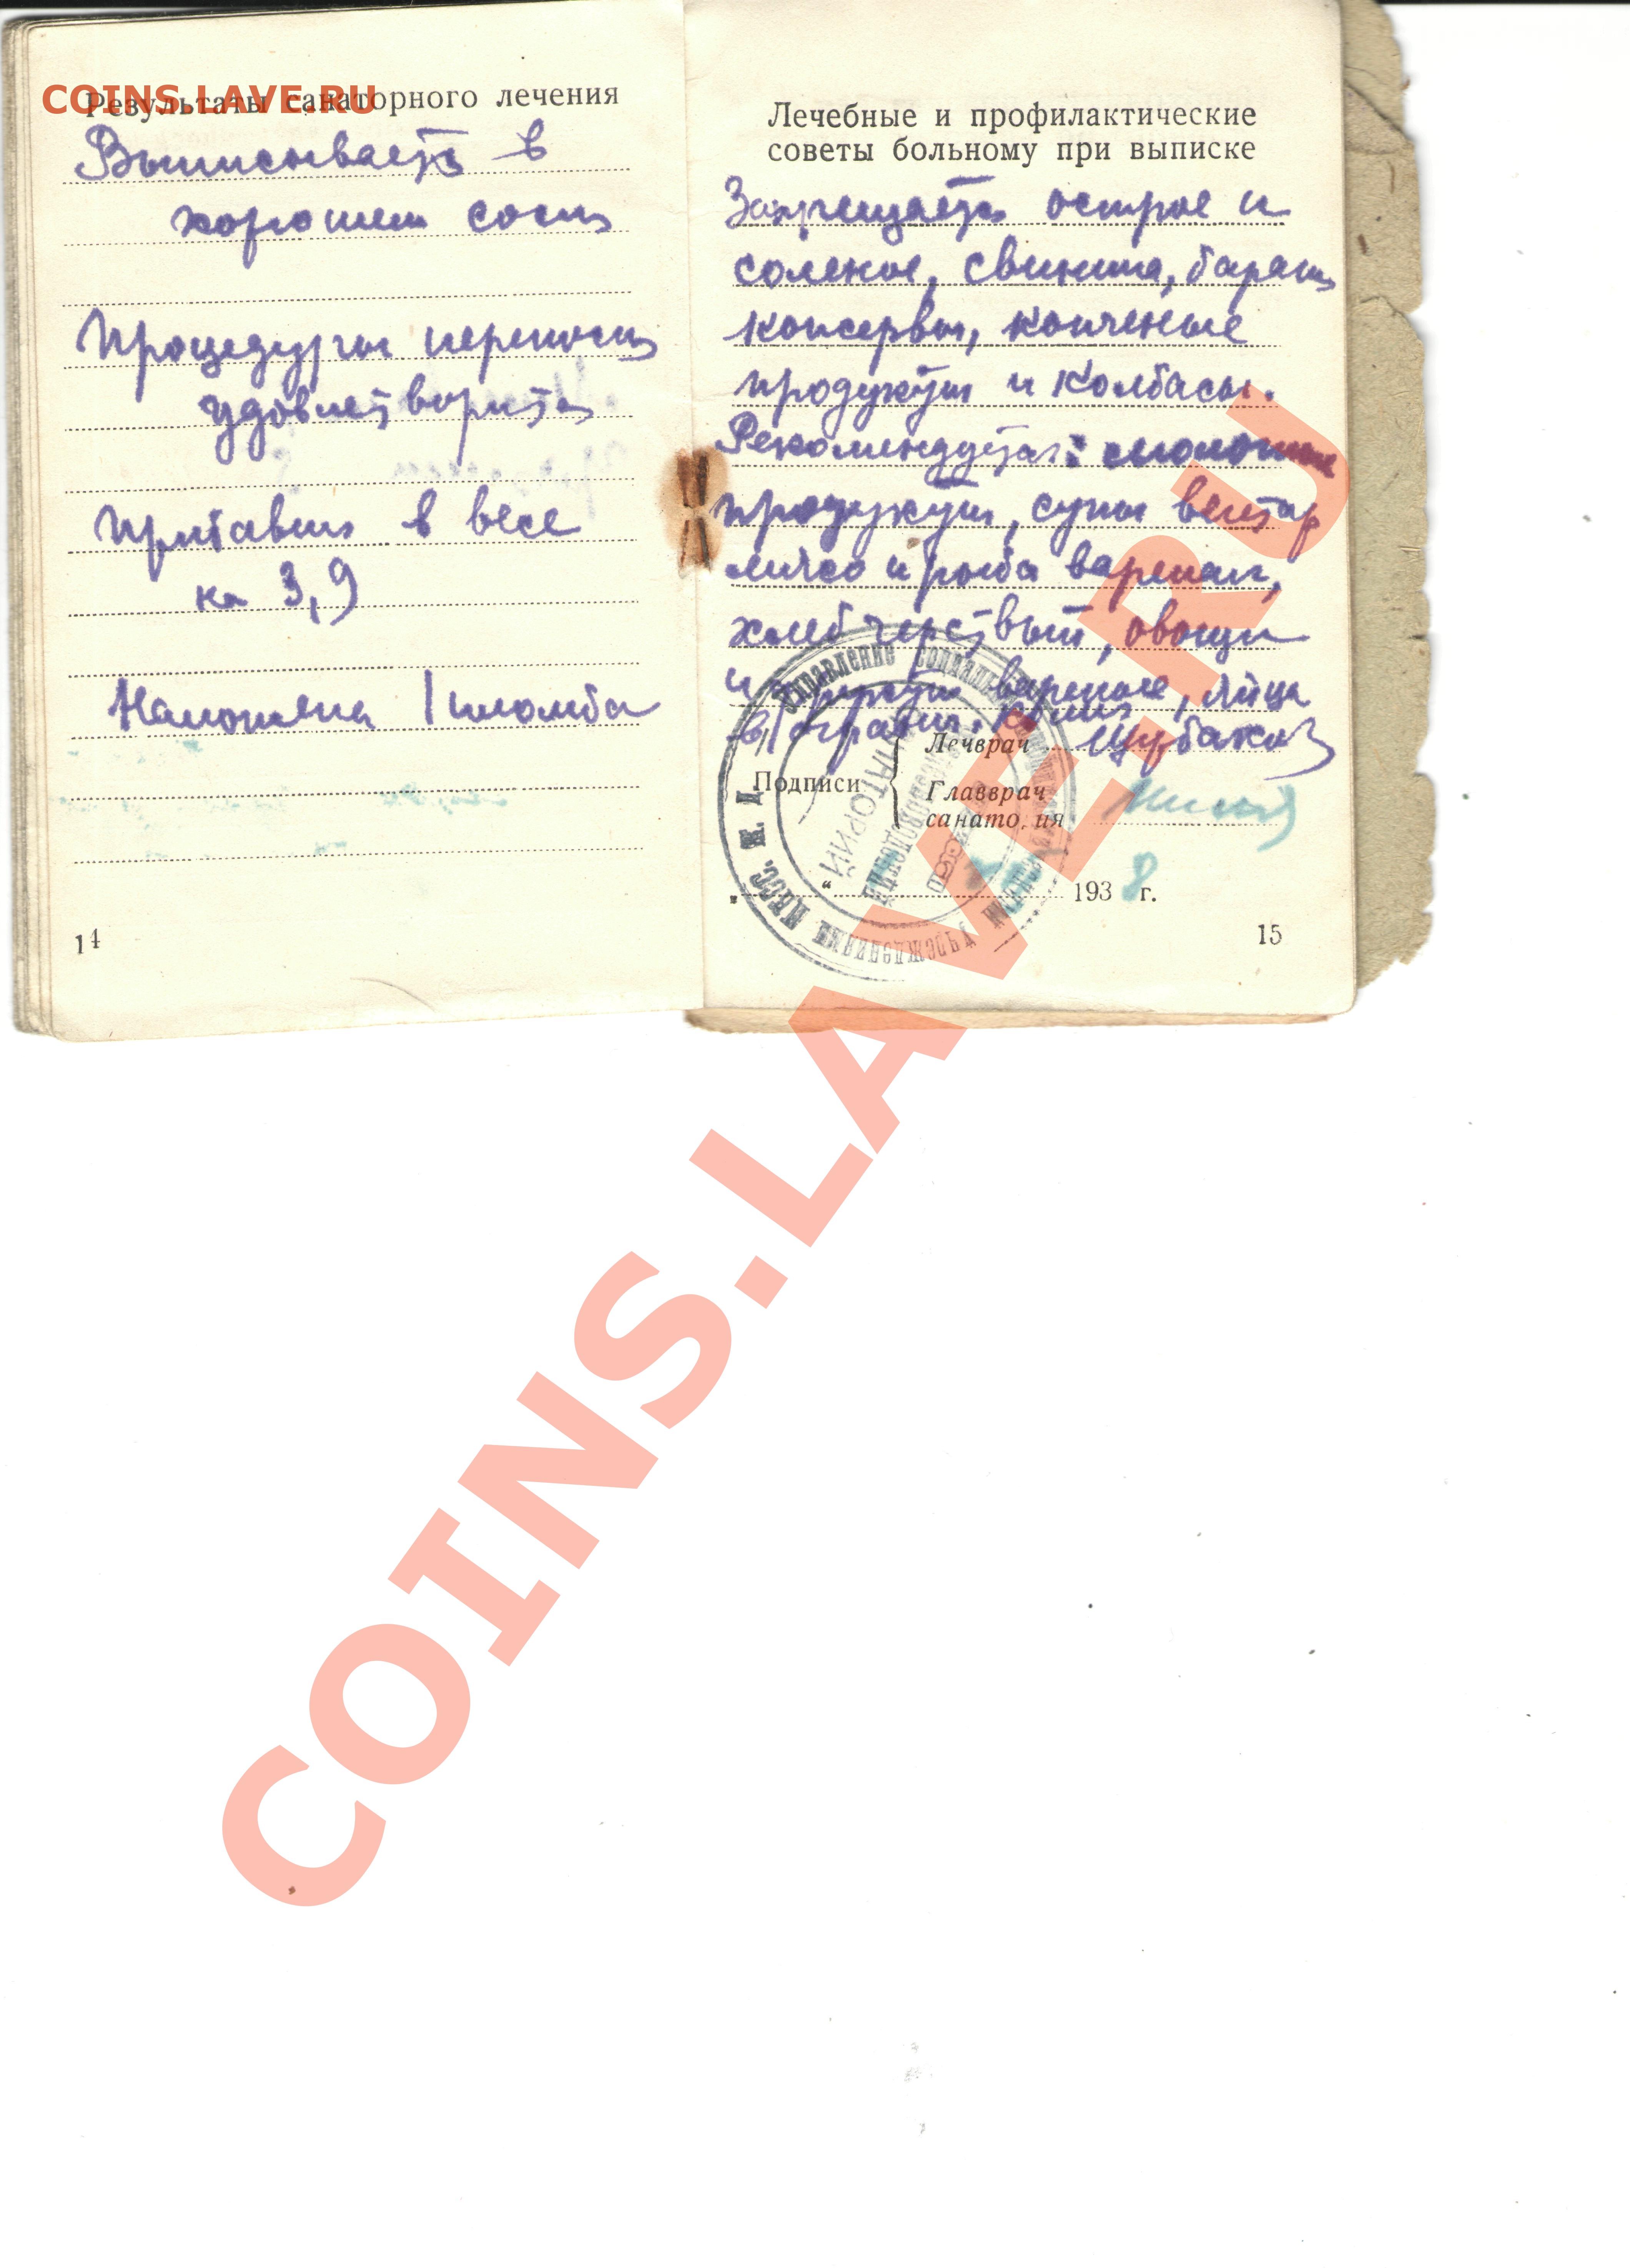 COINS.LAVE.RU
Результаты санаторного лечения
Выписывается в
хорошем сост
Процедуры переноси
удовлетворит
Прибавил в весе
на 3,9
Наложена 1 пломба
14
Лечебные и профилактические
советы больному при выписке
Запрещается острое и
соленое, свинина, баран
консервы, копченые
продукты и колбасы.
Рекомендуется: молочные
продукты, супы вегетар
мясо и рыба вареная,
хлеб черствый, овощи
и фрукты вареные, яйца
в огранич.
Подписи
Лечврач Щербаков
Главврач
санатория
193 8 г.
15
УПРАВЛЕНИЕ СОЦИАЛЬН
УЧРЕЖДЕНИЯМИ
САНАТОРИЙ
КИСЛОВОДСКИЙ
COINS.LAVE.RU